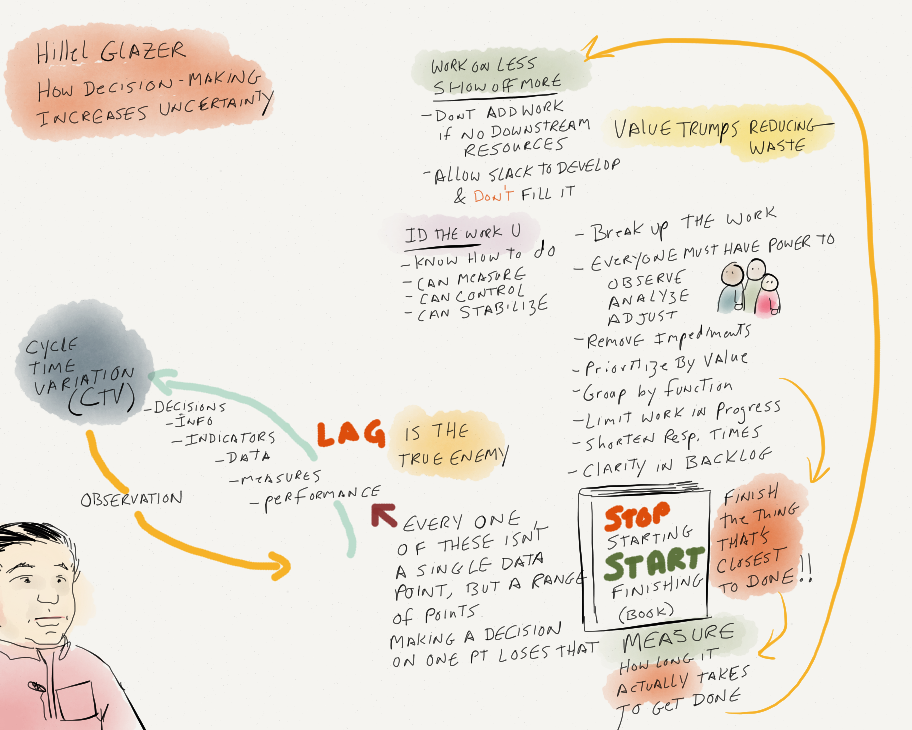 Hillel GLAZER
How Decision-Making
Increases Uncertainty
WORK ON LESS
SHOW OFF MORE
- DONT ADD WORK
if NO DOWNSTREAM
RESOURCES
- ALLOW SLACK TO DEVELOP
& DON'T FILL IT
VALUE TRUMPS REDUCING
WASTE
ID THE WORK U
- KNOW HOW TO do
- CAN MEASURE
- CAN CONTROL
- CAN STABILIZE
- BREAK UP THE WORK
- EVERYONE MUST HAVE POWER TO
OBSERVE
ANALYZE
ADJUST
- Remove Impediments
- Prioritize By Value
- Group by function
- LIMIT WORK IN PROGRESS
- SHORTEN RESP. TIMES
- CLARITY IN BACKLOG
CYCLE
TIME
VARIATION
(CTV)
- DECISIONS
- INFO
- INDICATORS
- DATA
- MEASURES
- PERFORMANCE
OBSERVATION
LAG IS THE
TRUE ENEMY
EVERY ONE
OF THESE ISN'T
A SINGLE DATA
POINT, BUT A RANGE
OF POINTS.
MAKING A DECISION
ON ONE PT LOSES THAT
STOP
STARTING
START
FINISHING
(BOOK)
FINISH
the THING
THAT'S
CLOSEST
TO DONE!!
MEASURE
HOW LONG IT
ACTUALLY TAKES
TO GET DONE